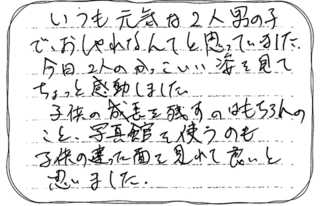 いつも元気な2人男の子
で、おしゃれなんてと、思っていました。
今日2人のかっこいい姿を見て
ちょっと感動しました。
子供の成長を残すのはもちろんの
こと、写真館を使うのも
子供の違った面を見れて良いと
思いました。